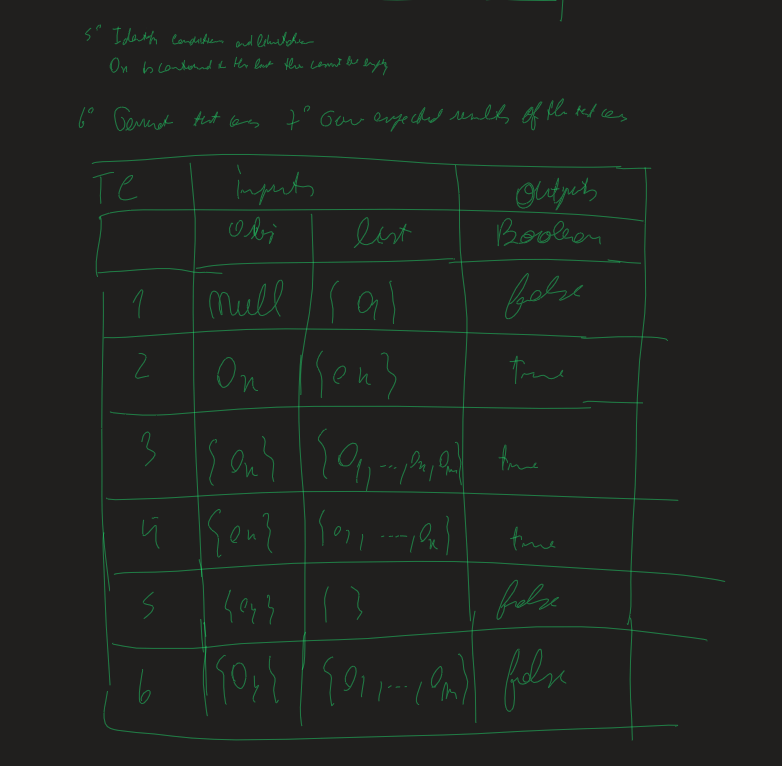 5° Identify conditions and
On is contained in the list the cannot be empty
6° Generate test cases 7° Give expected results of the test cases
TC inputs outputs
Obj list Boolean
1 null {o1} false
2 On {on} true
3 {on} {O1,...,on,om} true
4 {on} {o1,....,on} true
5 {oy} { } false
6 {Oy} {O1,...,Om} false